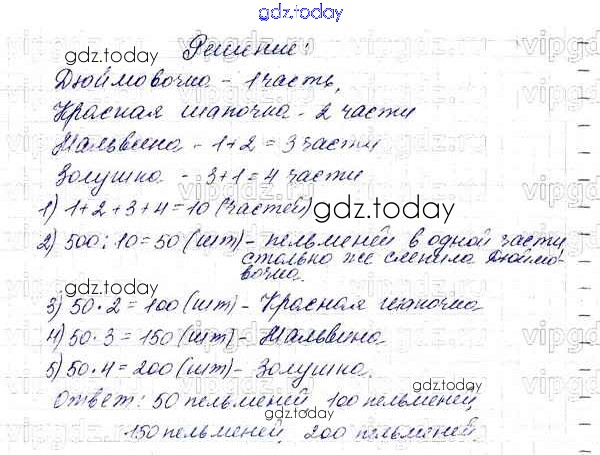 gdz.today
Решение:
gdz.today
Дюймовочка - 1 часть,
Красная шапочка - 2 части
Мальвина - 1+2=3 части
Золушка - 3+1=4 части
1) 1+2+3+4=10 (частей) gdz.today
2) 500:10=50 (шт) - пельменей в одной части
столько же слепила Дюймо-
вочка.
3) 50·2=100 (шт) - Красная шапочка
4) 50·3=150 (шт) - Мальвина
5) 50·4=200 (шт) - Золушка.
gdz.today
Ответ: 50 пельменей, 100 пельменей,
150 пельменей, 200 пельменей
gdz.today